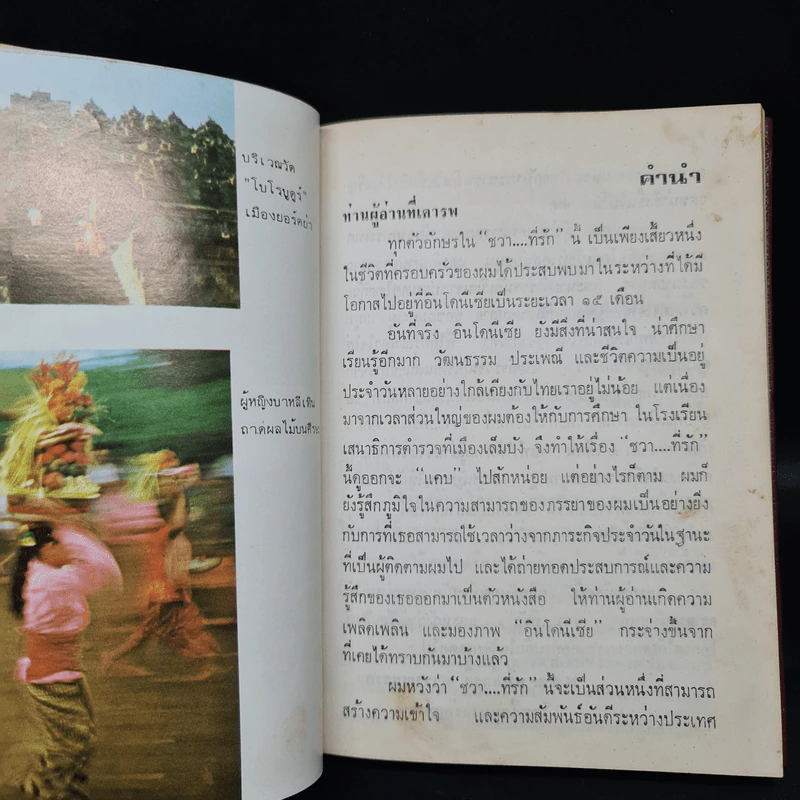 บริเวณวัด
"โบโรบูดูร์"
เมืองยอร์คย่า
ผู้หญิงบาหลีเทิน
ถาดผลไม้บนศีรษะ
คำนำ
ท่านผู้อ่านที่เคารพ
ทุกตัวอักษรใน “ชวา....ที่รัก” นี้ เป็นเพียงเสี้ยวหนึ่ง
ในชีวิตที่ครอบครัวของผมได้ประสบพบมาในระหว่างที่ได้มี
โอกาสไปอยู่ที่อินโดนีเซียเป็นระยะเวลา ๑๕ เดือน
อันที่จริง อินโดนีเซีย ยังมีสิ่งที่น่าสนใจ น่าศึกษา
เรียนรู้อีกมาก วัฒนธรรม ประเพณี และชีวิตความเป็นอยู่
ประจำวันหลายอย่างใกล้เคียงกับไทยเราอยู่ไม่น้อย แต่เนื่อง
มาจากเวลาส่วนใหญ่ของผมต้องให้กับการศึกษา ในโรงเรียน
เสนาธิการตำรวจที่เมืองเล็มบัง จึงทำให้เรื่อง “ชวา....ที่รัก”
นี้ดูออกจะ “แคบ” ไปสักหน่อย แต่อย่างไรก็ตาม ผมก็
ยังรู้สึกภูมิใจในความสามารถของภรรยาของผมเป็นอย่างยิ่ง
กับการที่เธอสามารถใช้เวลาว่างจากภาระกิจประจำวันในฐานะ
ที่เป็นผู้ติดตามผมไป และได้ถ่ายทอดประสบการณ์และความ
รู้สึกของเธอออกมาเป็นตัวหนังสือ ให้ท่านผู้อ่านเกิดความ
เพลิดเพลิน และมองภาพ “อินโดนีเซีย” กระจ่างขึ้นจาก
ที่เคยได้ทราบกันมาบ้างแล้ว
ผมหวังว่า “ชวา....ที่รัก” นี้จะเป็นส่วนหนึ่งที่สามารถ
สร้างความเข้าใจ และความสัมพันธ์อันดีระหว่างประเทศ